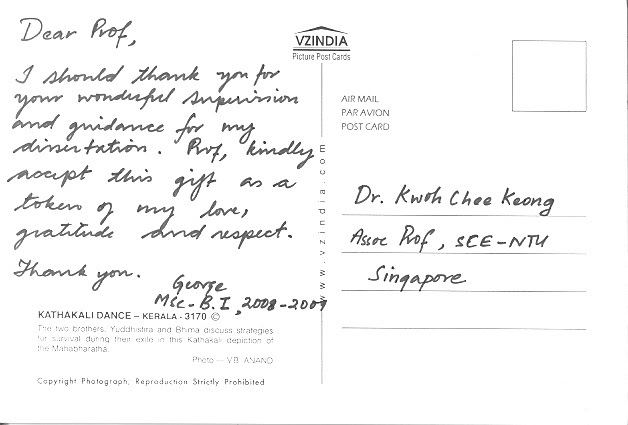 Dear Prof,
I should thank you for
your wonderful supervision
and guidance for my
dissertation. Prof, kindly
accept this gift as a
token of my love,
gratitude and respect.
Thank you.
George
Msc-B.I, 2008-2009
KATHAKALI DANCE – KERALA - 3170 ©
The two brothers, Yuddhistira and Bhima discuss strategies
for survival during their exile in this Kathakali depiction of
the Mahabharatha.
Photo – V.B. ANAND
Copyright Photograph, Reproduction Strictly Prohibited
VZINDIA
Picture Post Cards
www.vzindia.com
AIR MAIL
PAR AVION
POST CARD
Dr. Kwoh Chee Keong
Assoc Prof, SCE-NTU
Singapore